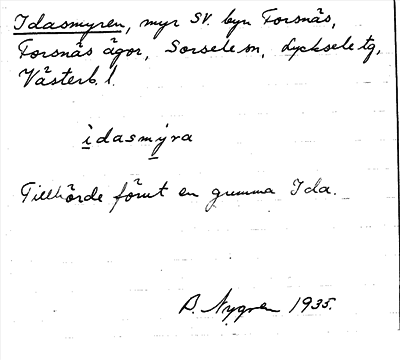 Idasmyren, myr SV. byn Forsnäs,
Forsnäs ägor, Sorsele sn, Lycksele tg,
Västerb. l.
ìdasmy̆ra
Tillhörde förut en gumma Ida.
B. Nygren 1935.